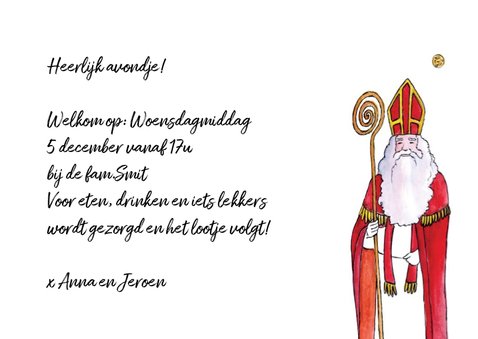 Heerlijk avondje!
Welkom op: Woensdagmiddag
5 december vanaf 17u
bij de fam.Smit
Voor eten, drinken en iets lekkers
wordt gezorgd en het lootje volgt!
x Anna en Jeroen